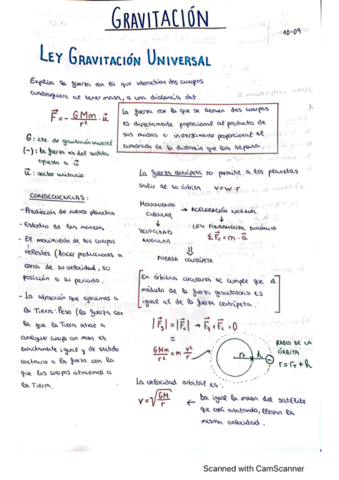 GRAVITACIÓN
10-09
LEY GRAVITACIÓN UNIVERSAL
Explica la fuerza con la que interactúan dos cuerpos
cualesquiera al tener masa, a una distancia dat.
F = - GMm/r² · u
La fuerza con la que se atraen dos cuerpos
es directamente proporcional al producto de
sus masas e inversamente proporcional al
cuadrado de la distancia que los separa.
G: cte. de gravitación universal
(-): la fuerza va del sentido
opuesto a u
u: vector unitario
La fuerza centrípeta no permite a los planetas
salir de su órbita v = w·r
CONSECUENCIAS:
- Predicción de nuevos planetas
- Estudio de las mareas
- El movimiento de los cuerpos
celestes (hacer predicciones a
cerca de su velocidad, su
posición o su periodo.
- La atracción que ejercemos a
la Tierra: Peso (la fuerza con
la que la Tierra atrae a
cualquier cuerpo con mas es
exactamente igual y de sentido
contrario a la fuerza con la
que los cuerpos atraemos a
la Tierra.
MOVIMIENTO CIRCULAR → ACELERACIÓN NORMAL
VELOCIDAD ANGULAR
LEY FUNDAMENTAL DINÁMICA
ΣF = m · a
FUERZA CENTRÍPETA
En órbitas circulares se cumple que el
módulo de la fuerza gravitatoria es
igual al de la fuerza centrípeta.
|Fg| = |Fc| → Fg + Fc = 0
GMm/r² = m v²/r
r h
RADIO DE LA
ÓRBITA
r = rT + h
La velocidad orbital es:
v = √GM/r ← Da igual la masa del satélite
que está orbitando, llevan la
misma velocidad.
Scanned with CamScanner